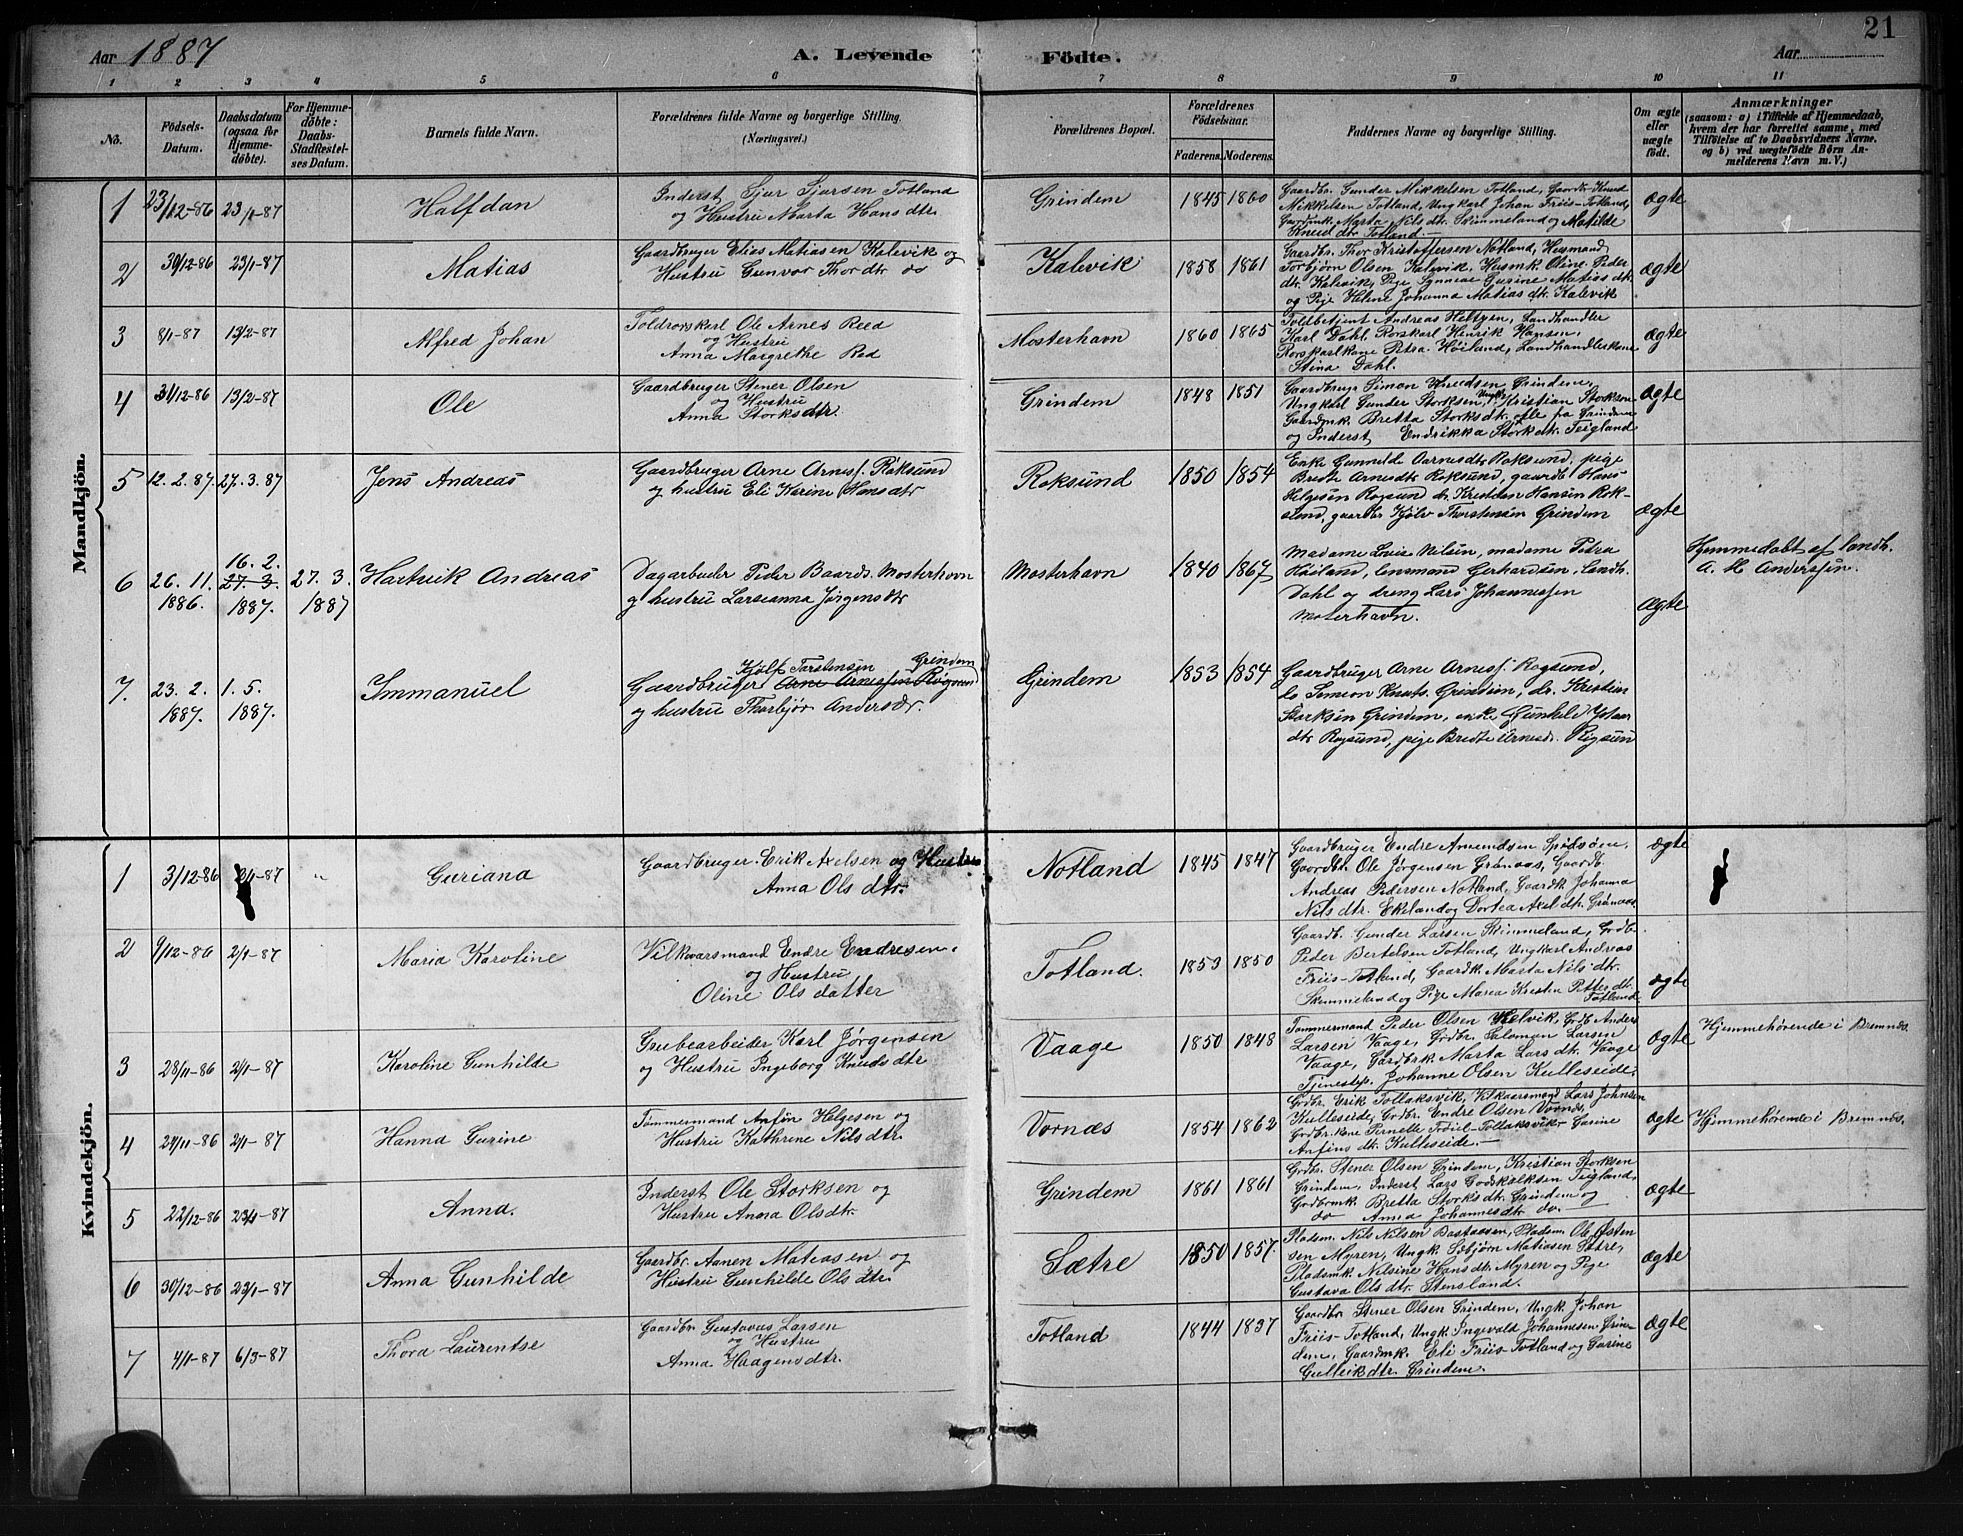 21
Aar 1887
A. Levende Födte.
Aar
1 2 3 4 5 6 7 8 9 10 11
No.
Födsels-Datum.
Daabsdatum (ogsaa for Hjemme-döbte).
For Hjemme-döbte: Daabs-Stadfæstel-ses Datum.
Barnets fulde Navn.
Forældrenes fulde Navne og borgerlige Stilling. (Næringsvei.)
Forældrenes Bopæl.
Forældrenes Födselsaar.
Faderens. Moderens.
Faddernes Navne og borgerlige Stilling.
Om ægte eller uægte födt.
Anmærkninger
(saasom: a) i Tilfælde af Hjemmedaab,
hvem der har forrettet samme, med
Tilföielse af to Daabsvidners Navne.
og b) ved uægtefödte Börn An-
melderens Navn m. V.)
Mandkjön.
1 23/12-86 23/1-87 Halfdan
Inderst Sjur Sjursen Totland
og Hustru Marta Hansdtr.
Grindem 1845 1860
Gaardbr. Gunder Mikkelsen Totland, Gaardb. Knud
Mikkelsen Totland, Ungkarl Johan Friis-Totland,
Gardmk. Marta Nilsdtr. Skimmeland og Matilde
Knudsdtr. Totland.
ægte
2 30/12-86 23/1-87 Matias
Gaardbruger Elias Matiasen Kalevik og
Hustru Gunvor Thordtr. do
Kalevik 1858 1861
Gaardbr. Thor Kristoffersen Notland, Husmand
Torbjørn Olsen Kalevik, Husmk. Oline Peder
dtr. Kalevik, Pige Synneve Gurine Matiasdtr.
og Pige Helene Johanna Matiasdtr. Kalevik
ægte
3 8/1-87 13/2-87 Alfred Johan
Toldrorskarl Ole Arnes Røed
og Hustru
Anna Margrethe Rød
Mosterhavn 1860 1865
Toldbetjent Andreas Heltzen, Landhandler
Karl Dahl. Rorskarl Henrik Hansen,
Rorskarlkone Petra Høiland, Landhandlerkone
Stina Dahl.
ægte
4 31/12-86 13/2-87 Ole
Gaardbruger Stener Olsen
og Hustru
Anna Storksdtr.
Grindem 1848 1851
Gaardbrugr Simon Knudsen Grindem,
Ungkarl Gunder Storksen, Ungk. Kristian Storksen
Gaardmk. Bretta Storksdtr. alle fra Grindem
og Inderst Endrikka Storksdtr. Teigland
ægte
5 12.2.87. 27.3.87 Jens Andreas
Gaardbruger Arne Arness. Røksund
og hustru Eli Karine Hansdtr
Roksund 1850 1854
Enke Gunnilde Aarnesdtr Roksund, pige
Bredte Arnesdtr Roksund, gaardb Hans
Helgesøn Rogsund dr. Kristian Hansen Rok-
sund, gaardbr Kjølv Thorstensen Grindem
ægte
6 26. 11. 1886. 16. 2. 27. 3. 1887. 27. 3. 1887 Hartvik Andreas
Dagarbeider Peder Baards. Mosterhavn
og hustru Larseanna Jørgensdtr
Mosterhavn 1840 1867
Madame Lovise Nilsen, madame Petra
Høiland, lensmand Gerhardsen, Landh.
Dahl og dreng Lars Johannessen
Mosterhavn.
ægte
Hjemmedøbt af landh.
A. M Anderssen.
7. 23. 2. 1887. 1. 5. 1887. Immanuel
Kjølf Tarstensen Grindem
Gaardbruger Arne Arnessen Rogsund
og hustru Thorbjør Andersdtr.
Grindem 1853 1854
Gaardbruger Arne Arness. Rogsund,
do Simeon Knuts. Grindem, dr. Kristian
Storksen Grindem, enke Gunhild
dtr Rogsund, pige Bredte Arnesd. Rogsun
Kvindekjön.
1 3/12-86 2/1-87 Guriana
Gaardbruger Erik Axelsen og Hustru
Anna Olsdtr.
Notland 1845 1847
Gaardbruger Endre Amundsen Spidsøen,
Gaardbr. Ole Jørgensen Grønaas, Gaardb.
Andreas Pedersen Notland, Gaardk. Johanna
Nilsdtr. Ekeland og Dortea Axeldtr. Grønaas
ægte
2 9/12-86 2/1-87 Maria Karoline
Vilkaarsmand Endre Endresen
og Hustru
Oline Olsdatter
Totland. 1853 1850
Gaardb. Gunder Larsen Rimmeland, Grdb.
Peder Bertelsen Totland, Ungkarl Andreas
Friis-Totland, Gaardk. Marta Nilsdtr.
Skimmeland og Pige Maria Kristen Petterdtr.
Totland
ægte
3 28/11-86 2/1-87 Karoline Gunhilde
Grubearbeider Karl Jørgensen
og Hustru Ingeborg Knudsdtr
Vaage 1850 1848
Tømmermand Peder Olsen Kelvik, Grdb. Anders
Larsen Vaage, Grdbr. Salomon Larsen
Vaage, Gardbrk. Marta Larsdtr. Vaage
Tjenestep. Johanne Olsen Kulleseide.
ægte
Hjemmehørende i Bremnes.
4 24/11-86 2/1-87 Hanna Gurine
Tømmermand Anfin Helgesen og
Hustru Kathrine Nilsdtr.
Vornæs 1854 1862
Grdbr. Erik Tollaksvik, Vilkaarsmand Lars Johnsen
Kulleseide, Grdbr. Endre Olsen Vornæs,
Grdbr.kone Pernelle Tollaksvik Gurine
Anfinsdtr. Kulleseide.
ægte
Hjemmehørende i Bremnes.
5 22/12-86 23/1-87 Anna.
Inderst Ole Storksen og
Hustru Anna Olsdtr.
Grindem 1861 1861
Grdbr. Stener Olsen Grindem, Kristian Storksen
Grindem, Inderst Lars Godskalksen Teigland,
Grdbrmk. Bretta Storksdtr. Grindem og
do Anna Johannesdtr. do.
ægte
6 30/12-86 23/1-87 Anna Gunhilde
Gaardbr. Aanen Matiasen og
Hustru Gunhilde Olsdtr.
Sætre 1850 1857.
Pladsm. Nils Nilsen Bastaasen, Pladsm. Ole Østen
sen Myren, Ungk. Sebjørn Matiasen Sætre,
Pladsmk. Nilsine Hansdtr. Myren og Pige
Gustava Olsdtr. Stensland.
ægte
7 4/1-87 6/3-87 Thora Laurentse
Gaardbr. Gustavus Larsen
og Hustru
Anna Haagensdtr.
Totland 1844 1837
Gaardbr. Stener Olsen Grindem, Ungk. Johan
Friis-Totland, Ungk. Ingevald Johannesen Grin-
dem, Gaardmk. Eli Friis-Totland og Gurine
Gulleikdtr. Grindem.
ægte